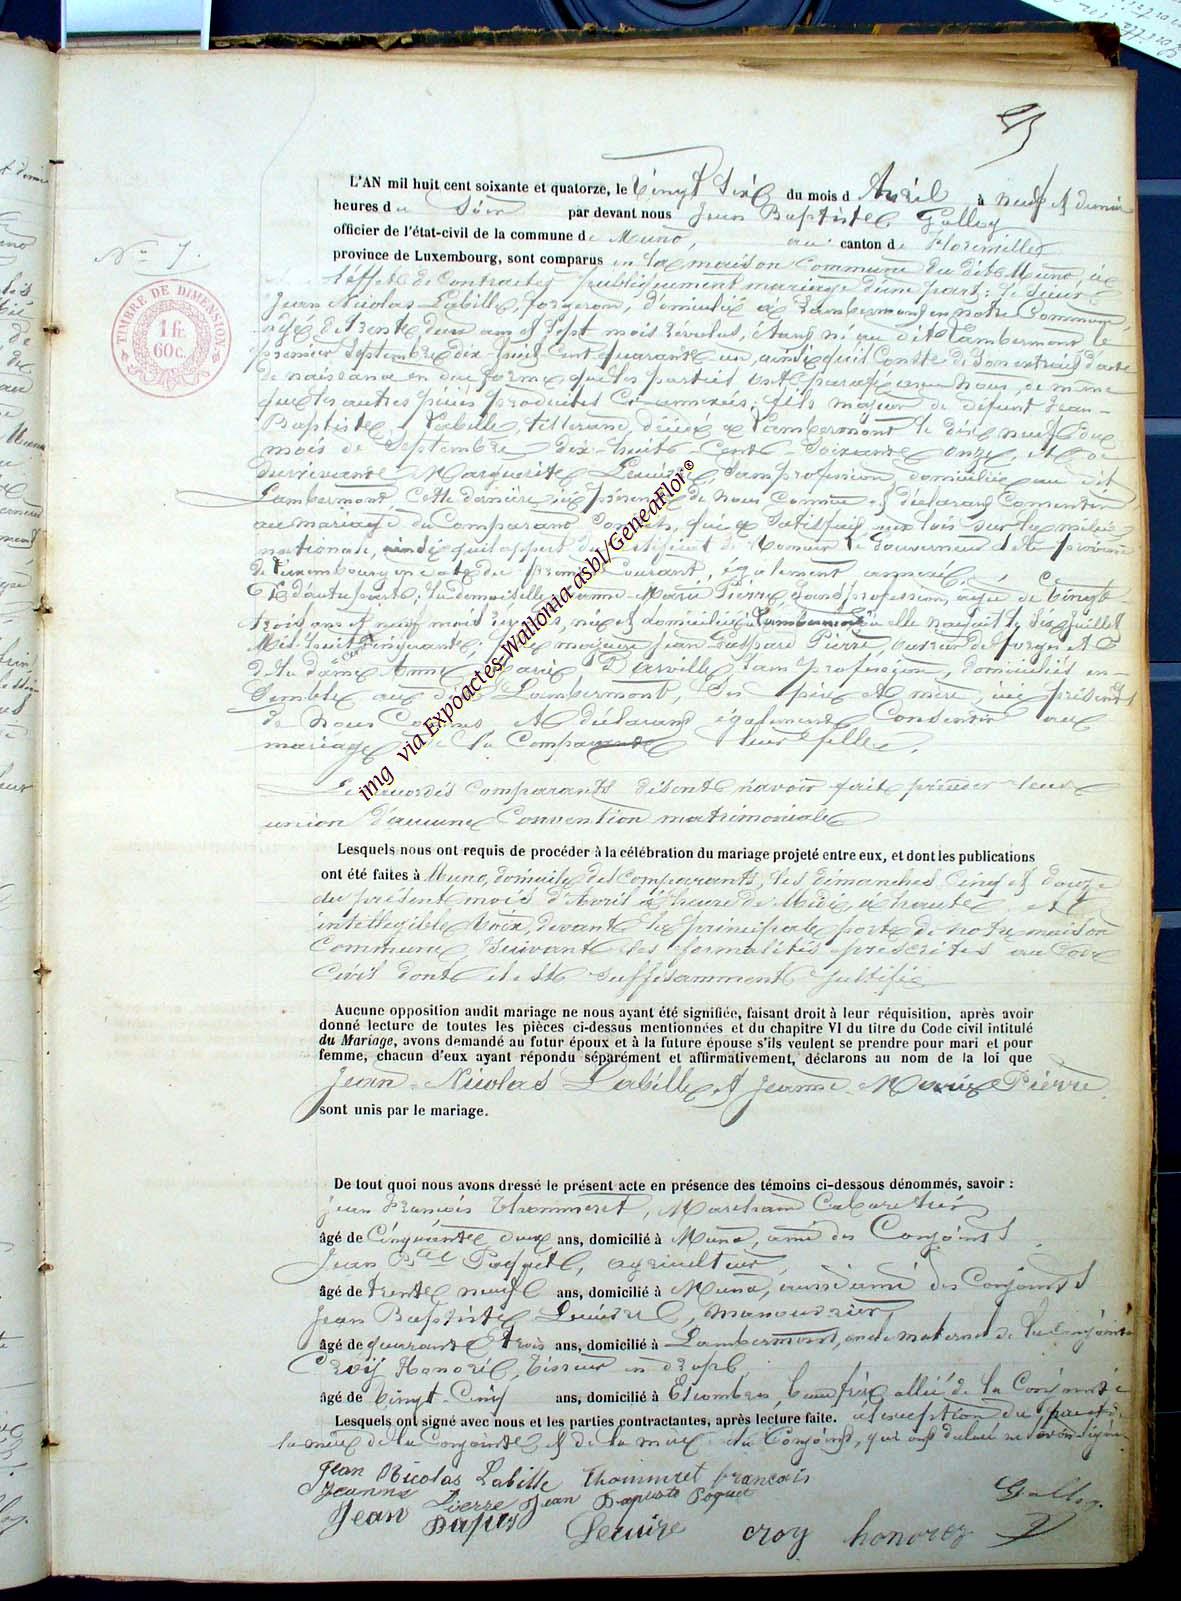 L'AN mil huit cent soixante et quatorze, le vingt six du mois d Avril à neuf et demie
heures du Soir par devant nous Jean Baptiste Galloy
officier de l'état-civil de la commune de Muno, au canton de Florenville
province de Luxembourg, sont comparus en la maison Commune du dit Muno, à
N° 7.
TIMBRE DE DIMENSION
1 fr.
60c.
l'effet de Contracter publiquement mariage d'une part: le Sieur
Jean Nicolas Labille, forgeron, domicilié à Lambermont en notre Commune,
âgé de trente deux ans et sept mois révolus, étant né au dit Lambermont le
premier Septembre dix huit cent quarante un, ainsi qu'il Conste de Son extrait d'acte
de naissance en due forme que les parties ont paraphé avec Nous, de même
que les autres pièces produites Ci annexées; fils majeur de défunt Jean-
Baptiste Labille, tisserand, décédé à Lambermont le dix neuf du
mois de Septembre dix-huit Cent Soixante onze, et de
Survivante Marguerite Lecuire, Sans profession, domiciliée au dit
Lambermont Cette dernière, ici présente, de Nous Connue et déclarant Consentir
au mariage du Comparant Son fils, qui a Satisfait aux lois Sur la milice
nationale, ainsi qu'il appert du Certificat de Monsieur le Gouverneur de la province
de Luxembourg en date du premier Courant, également annexé.
Et d'autre part; la demoiselle Jeanne Marie Pierre, Sans profession, âgée de vingt-
trois ans et neuf mois révolus, née et domiciliée à Lambermont où elle naquit le Six Juillet
Mil huit Cent Cinquante, fille majeure Jean Gaspard Pierre, ouvrier de forges et
de la dame Anne Marie Darville, Sans profession, domiciliés en-
Semble au dit Lambermont, Ses père et mère, ici présents
de Nous Connus et déclarant également Consentir au
mariage de la Comparante leur fille.
Les susdits Comparants disent n'avoir fait précéder leur
union d'aucune Convention matrimoniale
Lesquels nous ont requis de procéder à la célébration du mariage projeté entre eux, et dont les publications
ont été faites à Muno, domicile des Comparants, les dimanches Cinq et douze
du présent mois d'Avril à l'heure de Midi, à haute et
intelligible Voix, devant la principale porte de notre maison
Commune, Suivant les formalités prescrites au Code
Civil dont il est Suffisamment Justifié
Aucune opposition audit mariage ne nous ayant été signifiée, faisant droit à leur réquisition, après avoir
donné lecture de toutes les pièces ci-dessus mentionnées et du chapitre VI du titre du Code civil intitulé
du Mariage, avons demandé au futur époux et à la future épouse s'ils veulent se prendre pour mari et pour
femme, chacun d'eux ayant répondu séparément et affirmativement, déclarons au nom de la loi que
Jean-Nicolas Labille et Jeanne-Marie Pierre
sont unis par le mariage.
De tout quoi nous avons dressé le présent acte en présence des témoins ci-dessous dénommés, savoir :
Jean François Thommeret, Marchand Cabaretier
âgé de Cinquante deux ans, domicilié à Muno, ami des Conjoints
Jean Bte Poquet, agriculteur,
âgé de trente neuf ans, domicilié à Muno, aussi ami des Conjoints
Jean Baptiste Lecuire, manouvrier,
âgé de quarante et trois ans, domicilié à Lambermont, oncle maternel de la Conjointe
Croÿ Honoré, tisseur en draps,
âgé de vingt-Cinq ans, domicilié à Escombres, beau frère allié de la Conjointe
Lesquels ont signé avec nous et les parties contractantes, après lecture faite. à l'exception du père et de
la mère de la Conjointe et de la mère du Conjoint, qui ont déclaré ne savoir signer
Jean Nicolas Labille Thommeret francois
Jeanne Pierre Jean Bapuste Poquet Galloy
Jean Baptis Lecuire croy honorez
img via Expoactes-Wallonia-asbl/GeneaFlor®